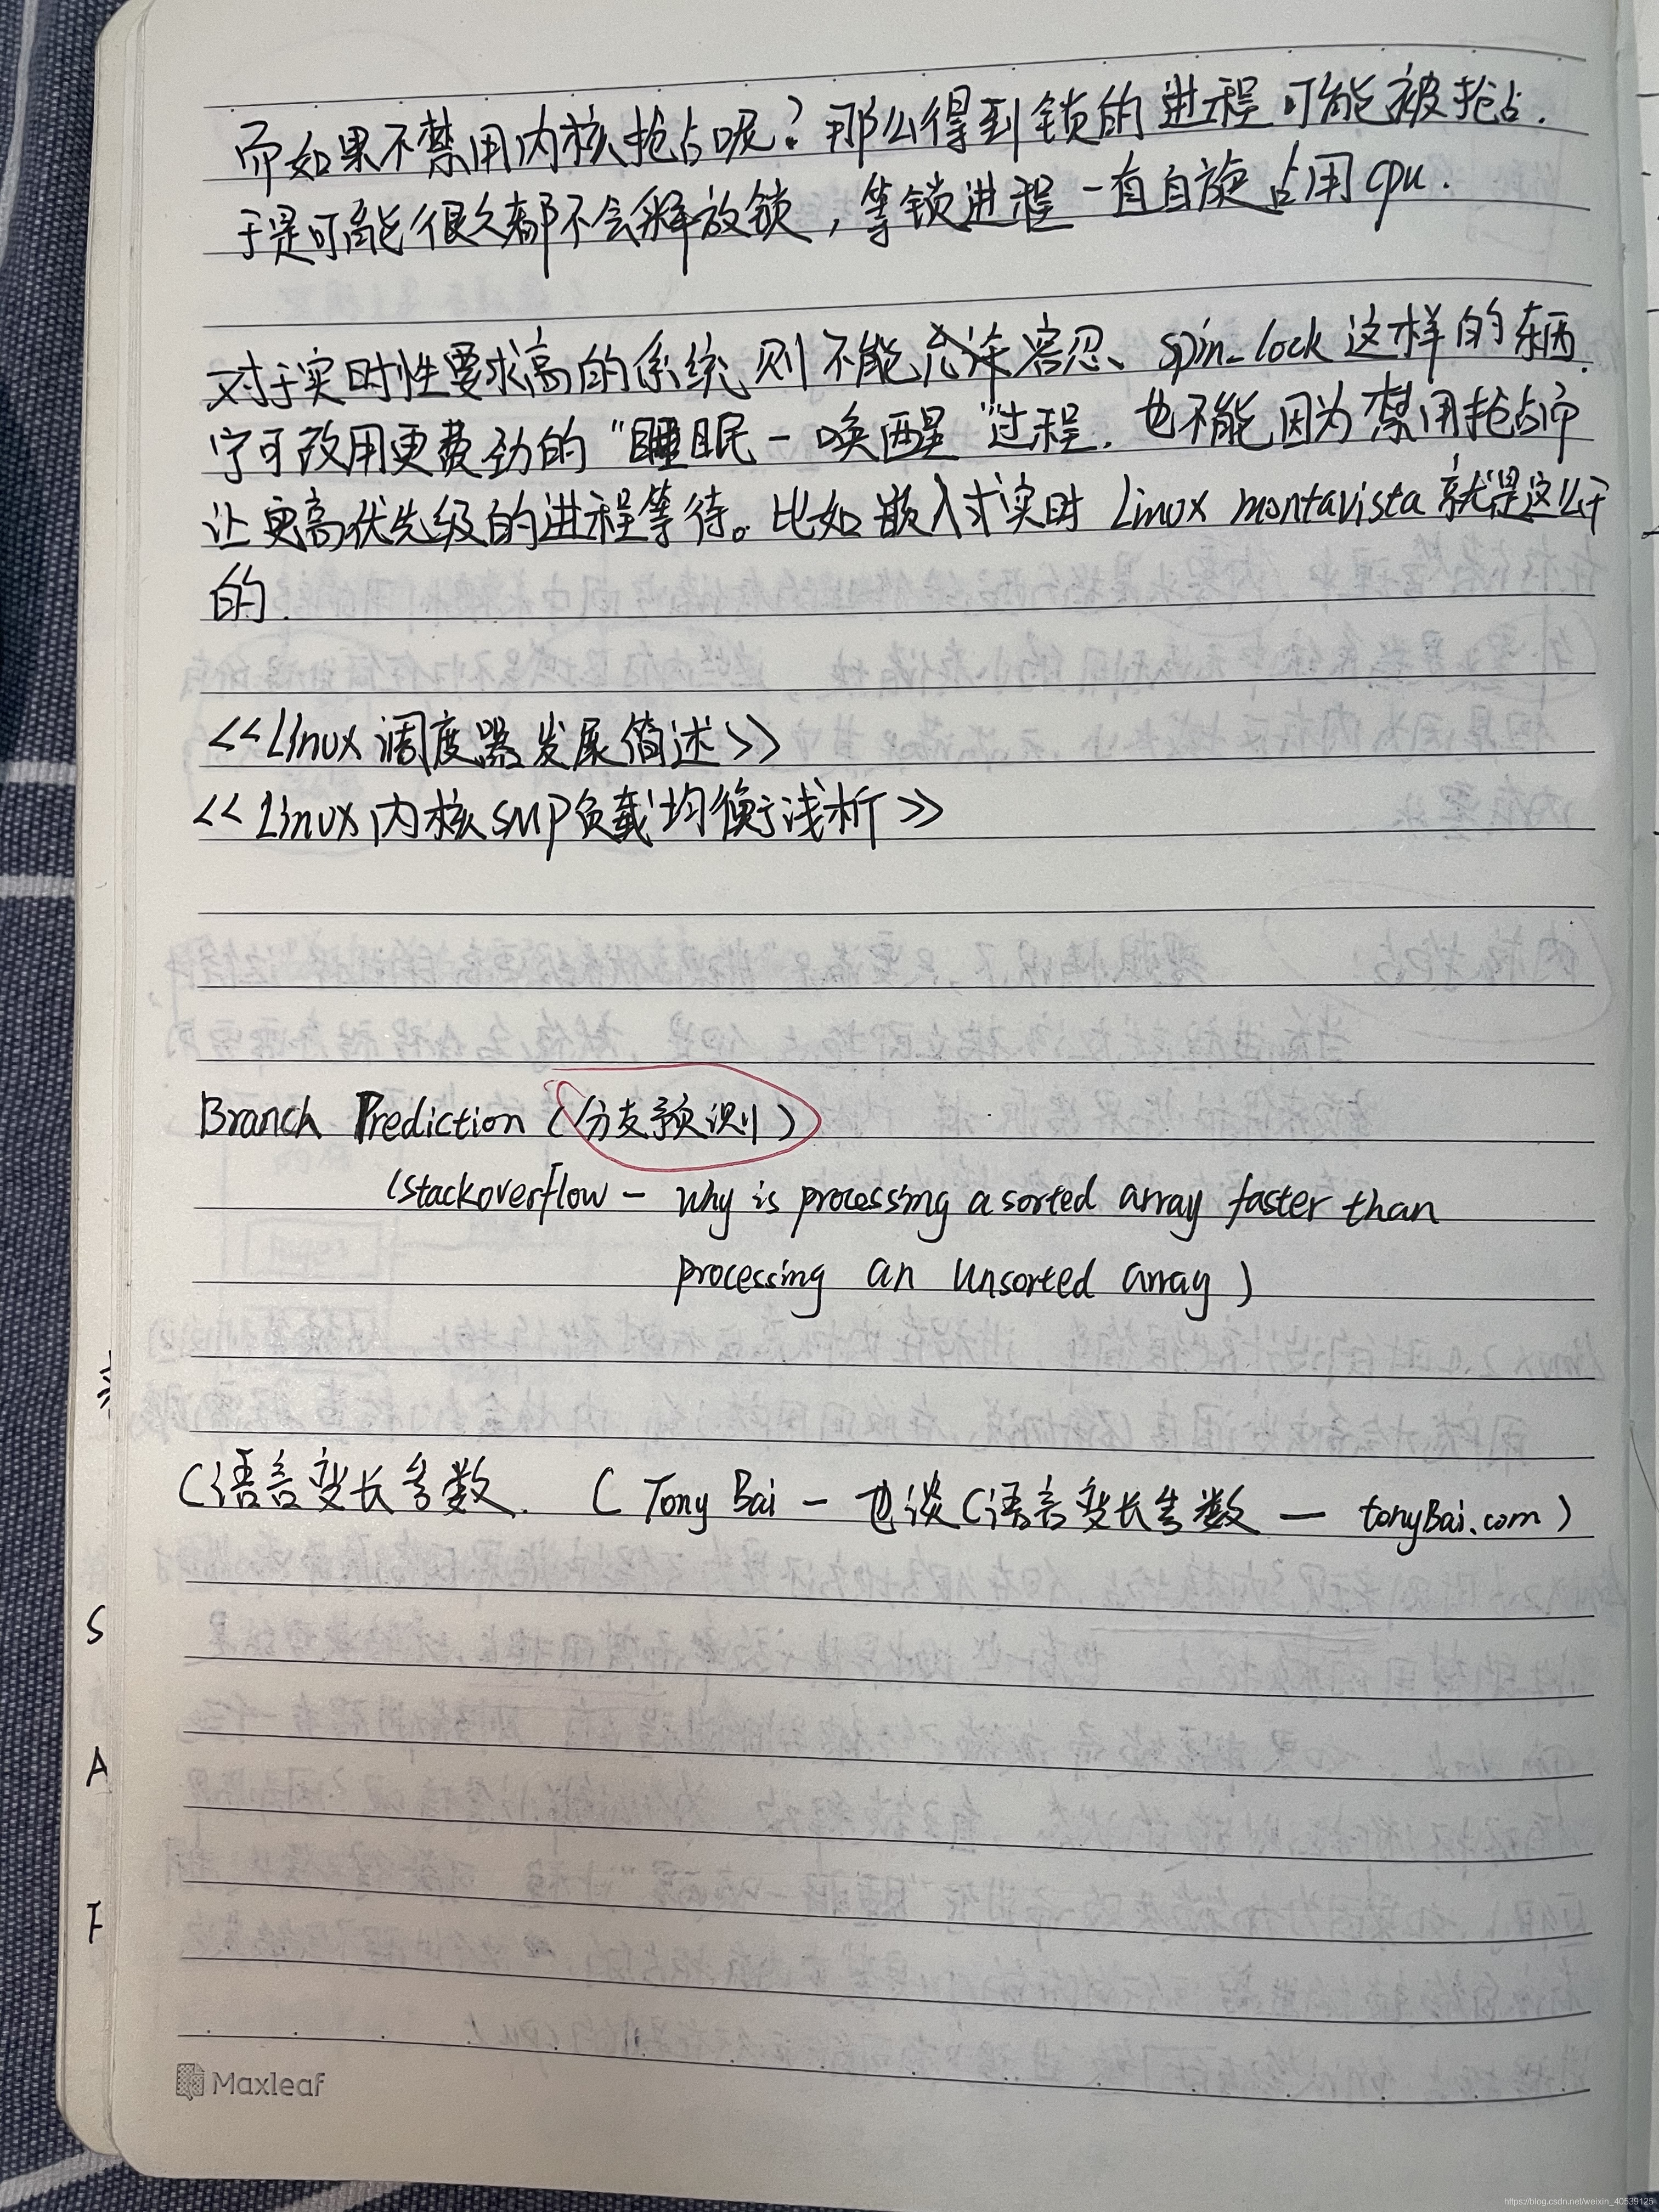 而如果不禁用内核抢占呢？那么得到锁的进程可能被抢占.
于是可能很久都不会释放锁，等锁进程一直自旋占用cpu.
对于实时性要求高的系统则不能允许容忍、spin_lock这样的东西.
宁可改用更费劲的"睡眠－唤醒"过程.也不能因为禁用抢占而
让更高优先级的进程等待。比如嵌入式实时Linux montavista就是这么干
的.
<<Linux调度器发展简述>>
<<Linux内核SMP负载均衡浅析>>
Branch Prediction (分支预测)
(stackoverflow - why is processing a sorted array faster than
processing an unsorted array)
C语言变长参数. ( Tony Bai - 也谈C语言变长参数 — tonyBai.com)
S
A
F
Maxleaf
https://blog.csdn.net/weixin_40539125